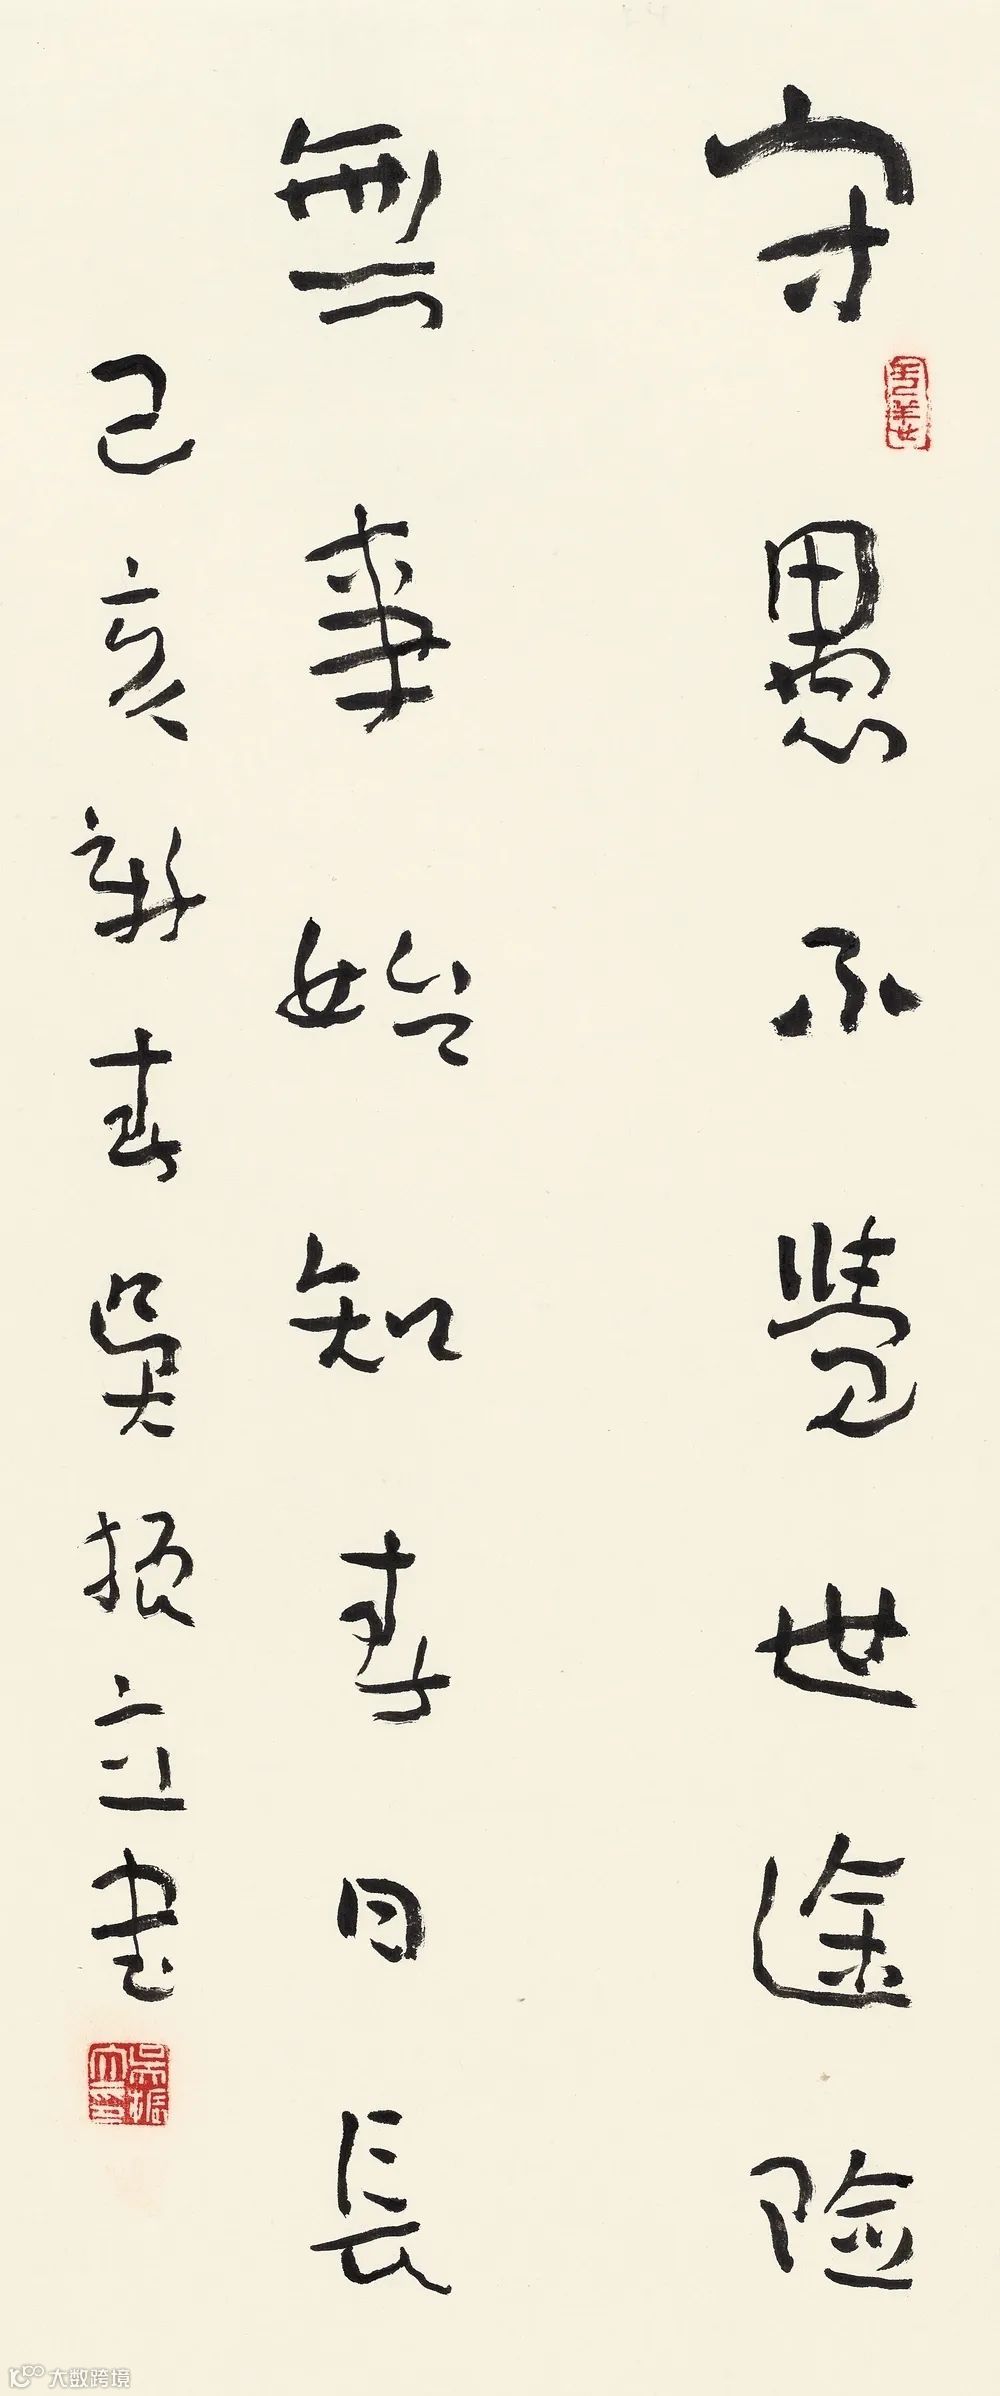 守愚不覺世途險
無事始知春日長
己亥新春吳振立書
吳振立印
大数跨境